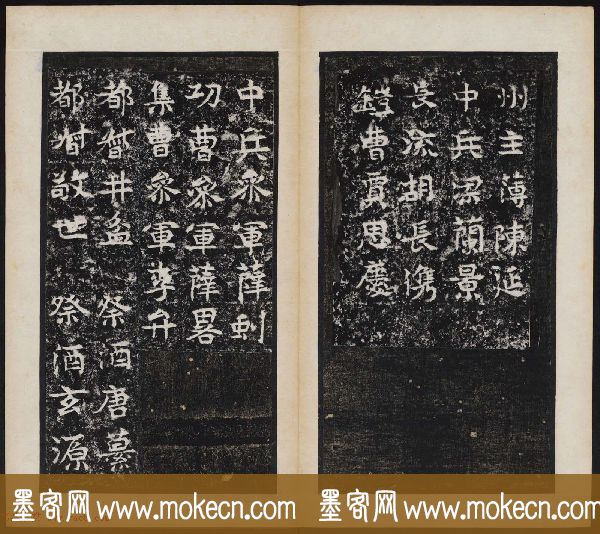 州主薄陳延
中兵梁蘭景
長流胡長儁
鎧曹賈思慶
中兵叅軍薛
功曹叅軍薛畧
集曹叅軍李弁
都督井盆 祭酒唐
都督敬世 祭酒玄源
墨客网 www.mokecn.com 墨客网 www.mokecn.com